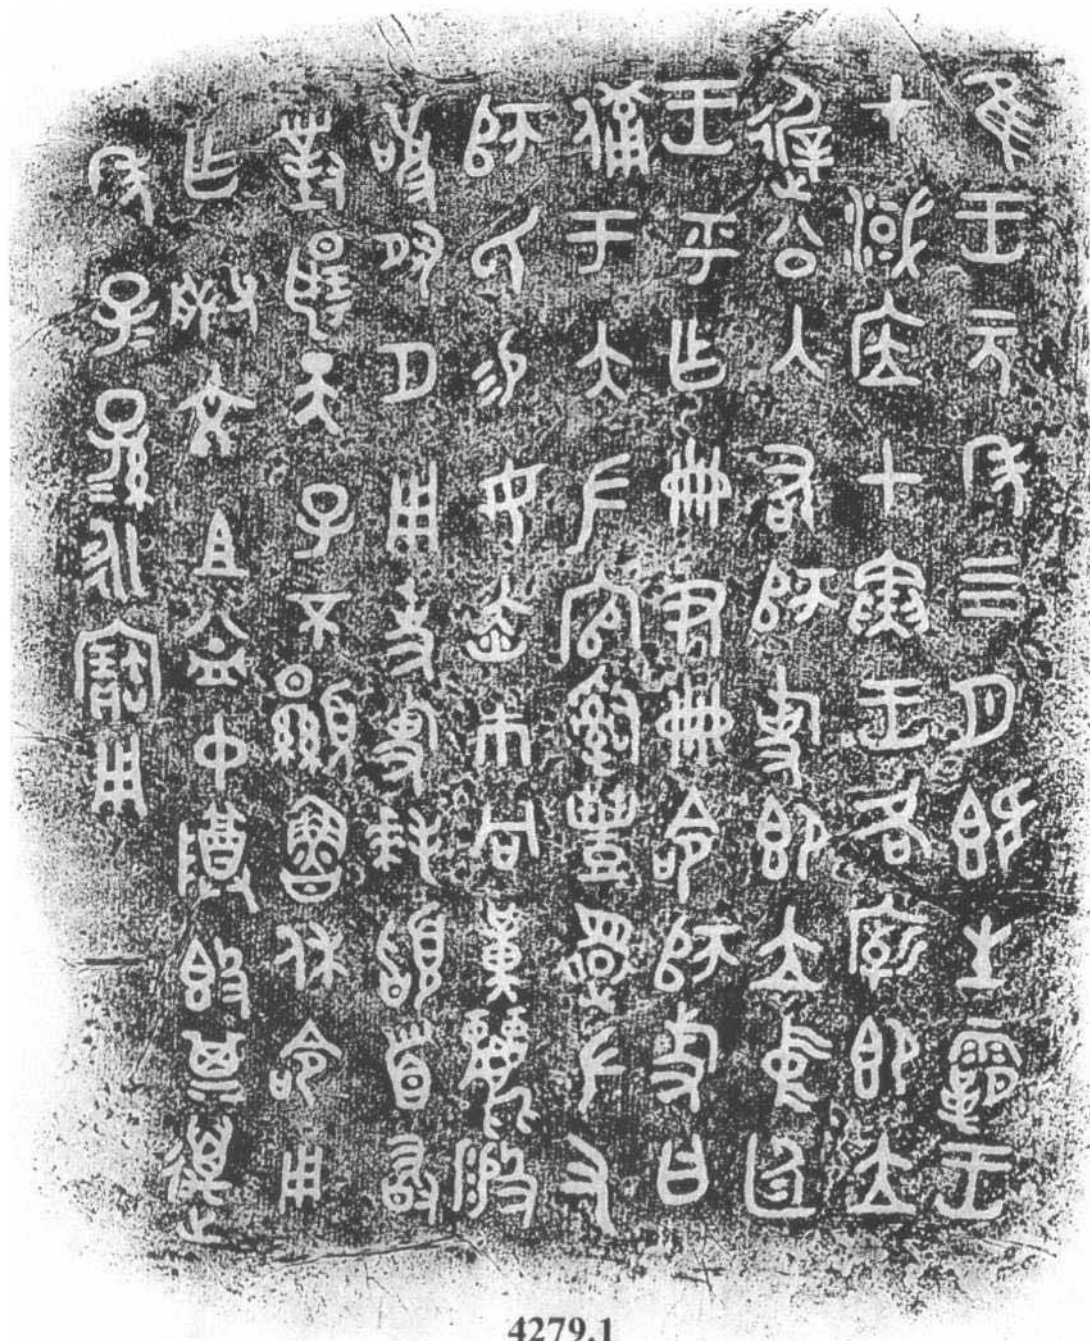 隹王元年四月既生霸王
才淢应甲寅王各廟即立
遟公入右師旋即立中廷
王乎乍冊尹冊命師旋曰
備于大左官𤔲豐還左又
師氏易女赤巿冋黃麗般
敬夙夕用事旋拜𩒨首敢
對揚天子不顯魯休命用
乍朕文且益中尊𣪘其萬
年子=孫=永寶用
4279.1